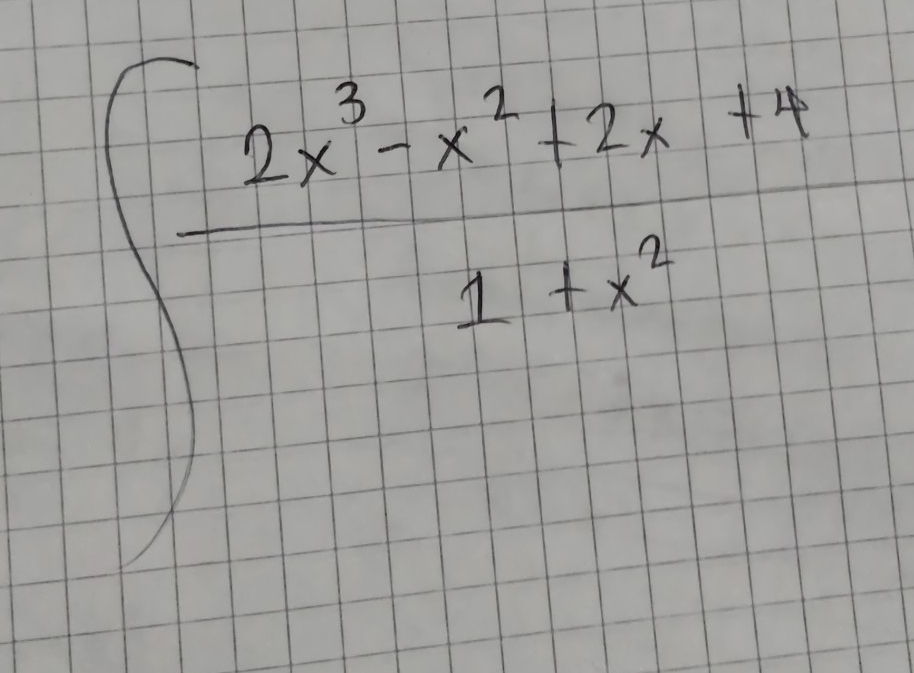 ∫ 2x³ - x² + 2x + 4
1 + x²